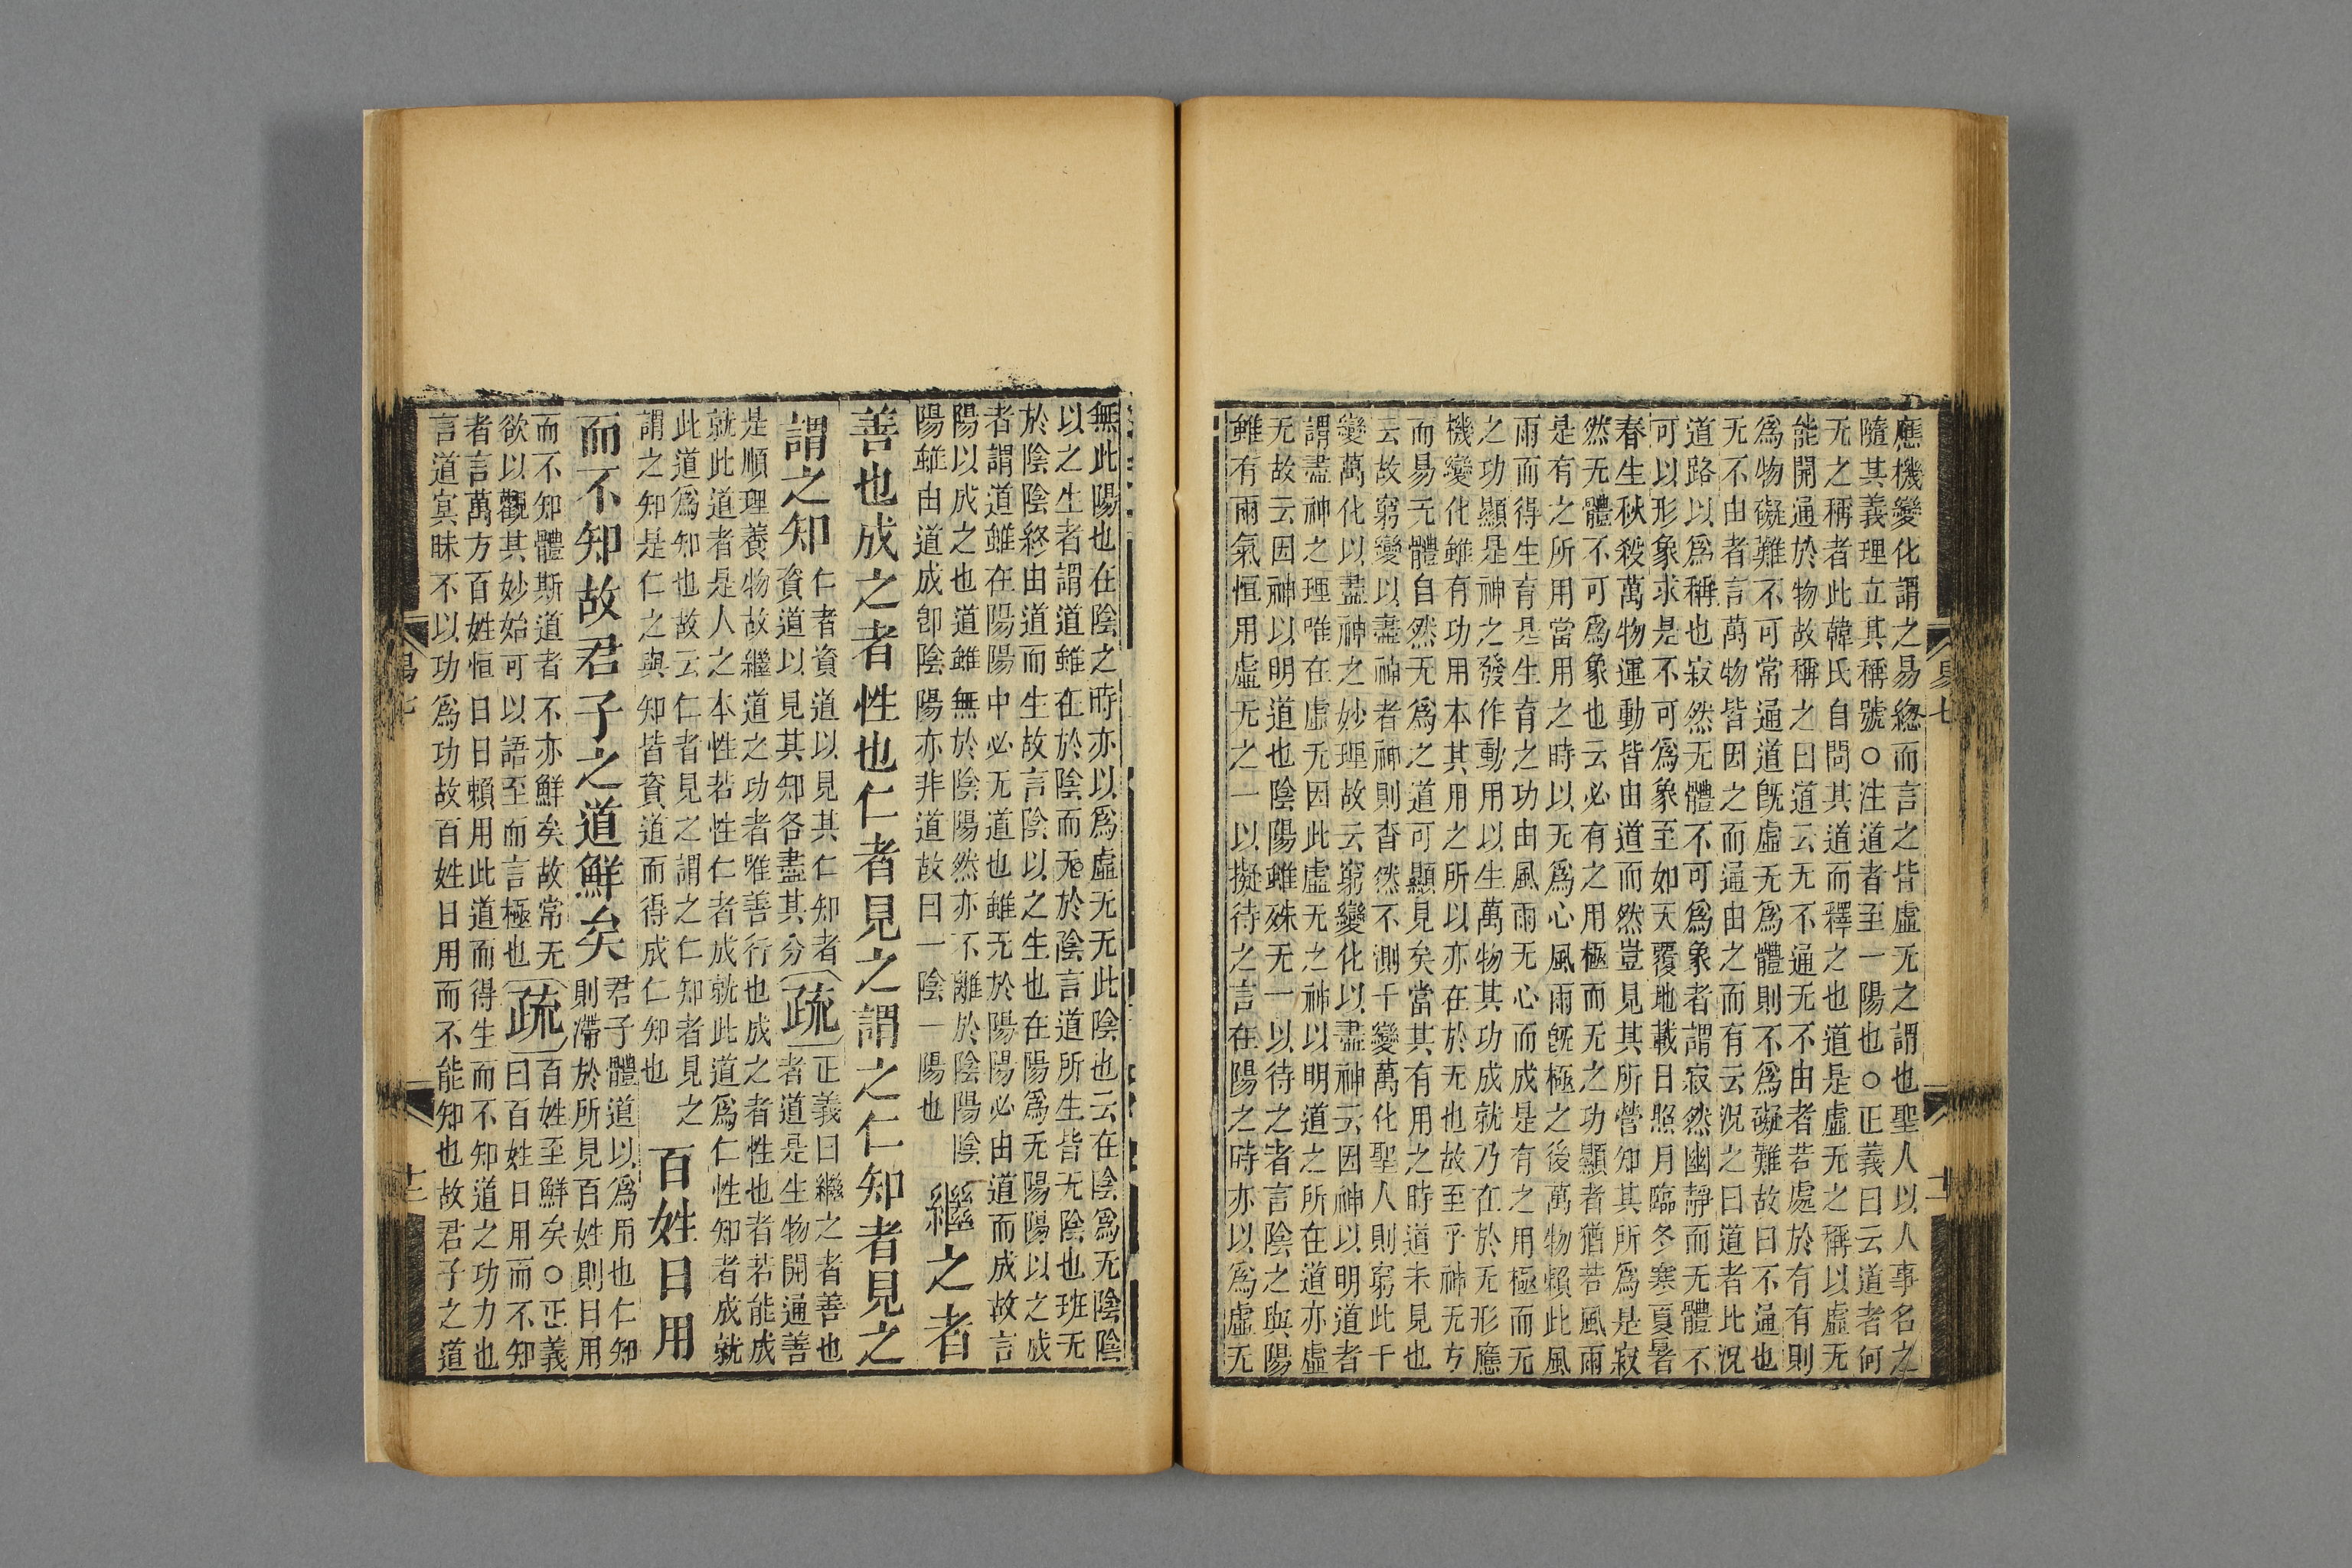 應機變化謂之易緫而言之皆虛无之謂也聖人以人事名之
隨其義理立其稱號○注道者至一陽也○正義曰云道者何
无之稱者此韓氏自問其道而釋之也道是虛无之稱以虛无
能開通於物故稱之曰道云无不通无不由者若處於有有則
爲物礙難不可常通道旣虛无爲體則不爲礙難故曰不通也
无不由者言萬物皆因之而通由之而有云况之曰道者比况
道路以爲稱也寂然无體不可爲象者謂寂然幽靜而无體不
可以形象求是不可爲象至如天覆地載日照月臨冬寒夏暑
春生秋殺萬物運動皆由道而然豈見其所營知其所爲是寂
然无體不可爲象也云必有之用極而无之功顯者猶若風雨
是有之所用當用之時以无爲心風雨旣極之後萬物賴此風
雨而得生育是生育之功由風雨无心而成是有之用極而无
之功顯是神之發作動用以生萬物其功成就乃在於无形應
機變化雖有功用本其用之所以亦在於无也故至乎神无方
而易无體自然无爲之道可顯見矣當其有用之時道未見也
云故窮變以盡神者神則杳然不測千變萬化聖人則窮此千
變萬化以盡神之妙理故云窮變化以盡神云因神以明道者
謂盡神之理唯在虛无因此虛无之神以明道之所在道亦虛
无故云因神以明道也陰陽雖殊无一以待之者言陰之與陽
雖有兩氣恒用虛无之一以擬待之言在陽之時亦以爲虛无
易七
十一
無此陽也在陰之時亦以爲虛无无此陰也云在陰爲无陰陰
以之生者謂道雖在於陰而无於陰言道所生皆无陰也班无
於陰陰終由道而生故言陰以之生也在陽爲无陽陽以之成
者謂道雖在陽陽中必无道也雖无於陽陽必由道而成故言
陽以成之也道雖無於陰陽然亦不離於陰陽陰
陽雖由道成卽陰陽亦非道故曰一陰一陽也
繼之者
善也成之者性也仁者見之謂之仁知者見之
謂之知
仁者資道以見其仁知者
資道以見其知各盡其分
疏
正義曰繼之者善也
者道是生物開通善
是順理養物故繼道之功者唯善行也成之者性也者若能成
就此道者是人之本性若性仁者成就此道爲仁性知者成就
此道爲知也故云仁者見之謂之仁知者見之
謂之知是仁之與知皆資道而得成仁知也
百姓日用
而不知故君子之道鮮矣
君子體道以爲用也仁知
則滯於所見百姓則日用
而不知體斯道者不亦鮮矣故常无
欲以觀其妙始可以語至而言極也
疏
百姓至鮮矣○正義
曰百姓日用而不知
者言萬方百姓恒日日賴用此道而得生而不知道之功力也
言道冥昧不以功爲功故百姓日用而不能知也故君子之道
易七
十二